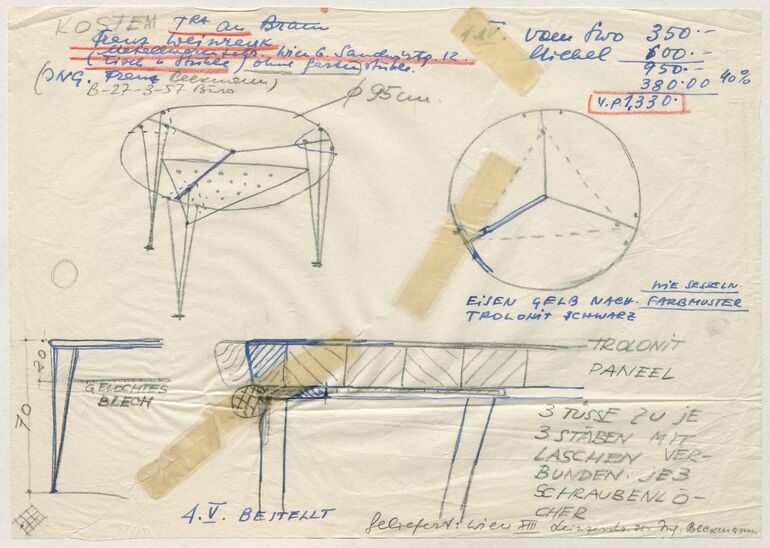 KOSTEM TRA an Braun
Franz Weinrenk
Wien 6. Sandwirtg. 12
(Tisch u Stühle) ohne
(ING. Franz Beckmann)
B-27-3-57 Büro
4.V. vom Svo 350.--
Michel 600.--
950.--
380.00 40%
V.P. 1,330.-
Ø 95cm.
WIE SESSELN.
EISEN GELB NACH. FARBMUSTER
TROLONIT SCHWARZ
20
70
GELOCHTES
BLECH
TROLONIT
PANEEL
3 FÜSSE ZU JE
3 STÄBEN MIT
LASCHEN VER-
BUNDEN. JE 3
SCHRAUBENLÖ-
CHER
4.V. BESTELLT
Geliefert: Wien XIII Ing. BECKMANN